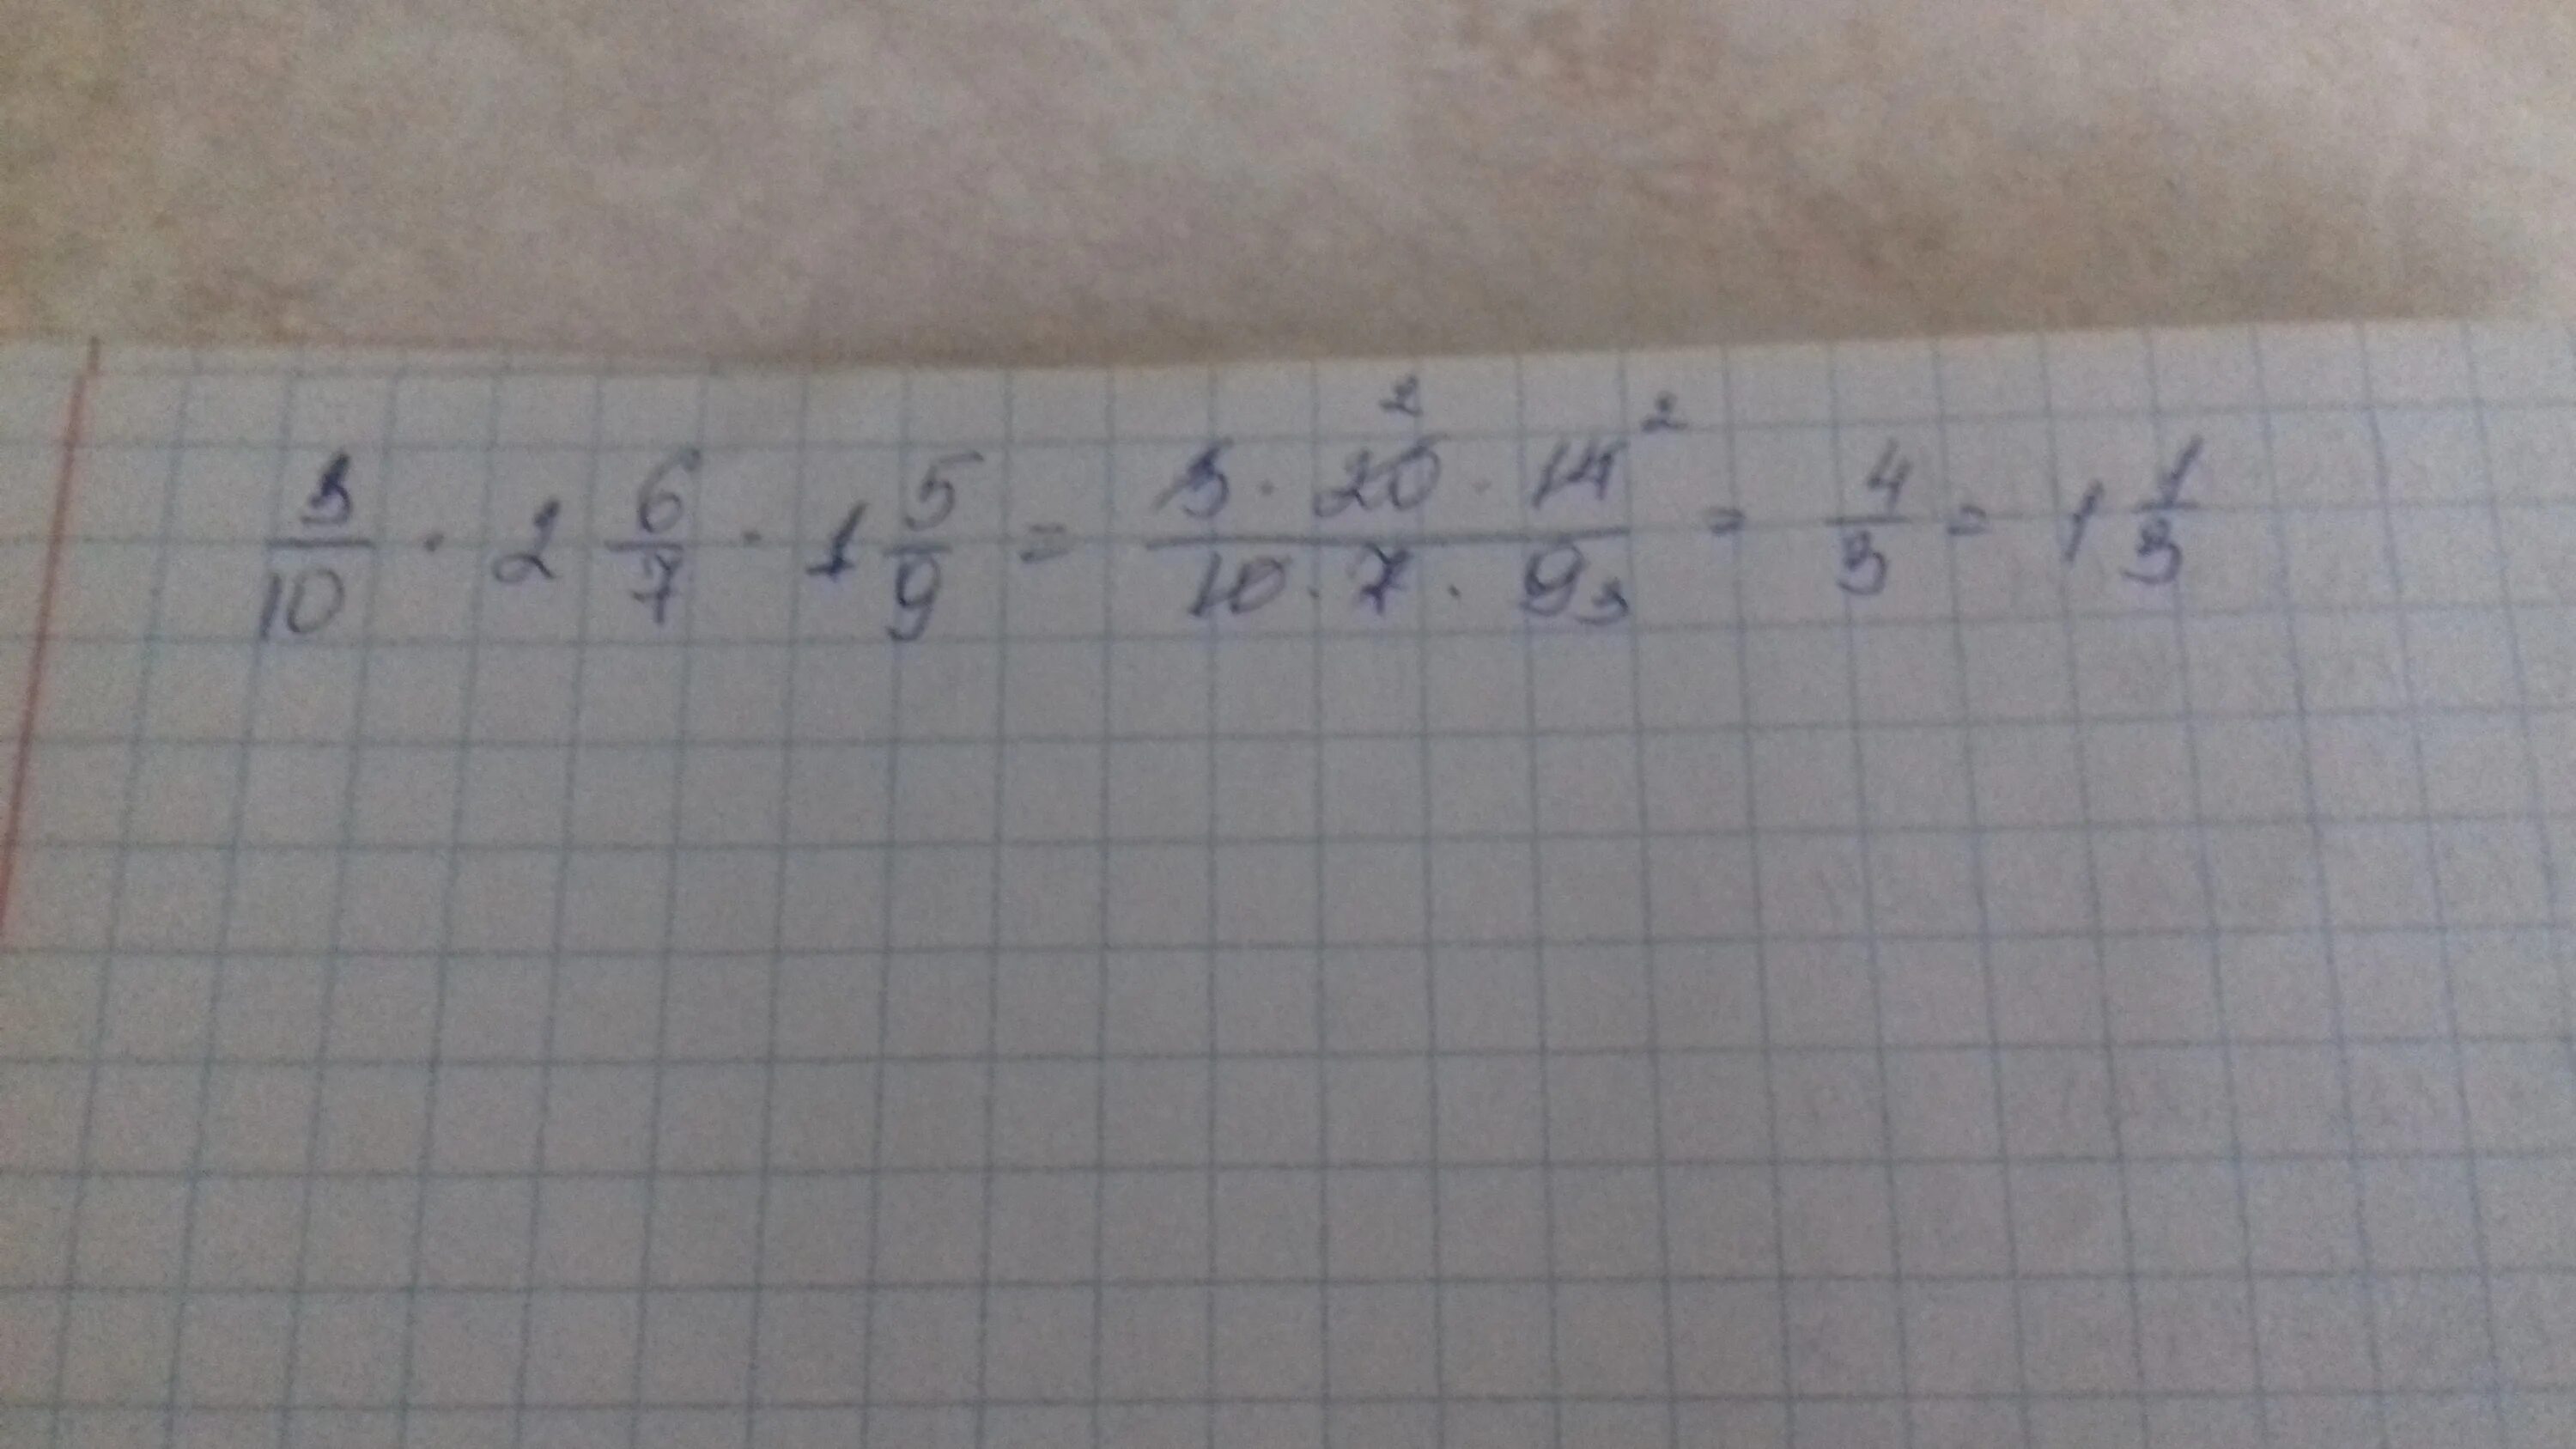 3/10 · 2 6/7 · 1 5/9 = 3 · 20² · 14² / 10 · 7 · 9₃ = 4/3 = 1 1/3